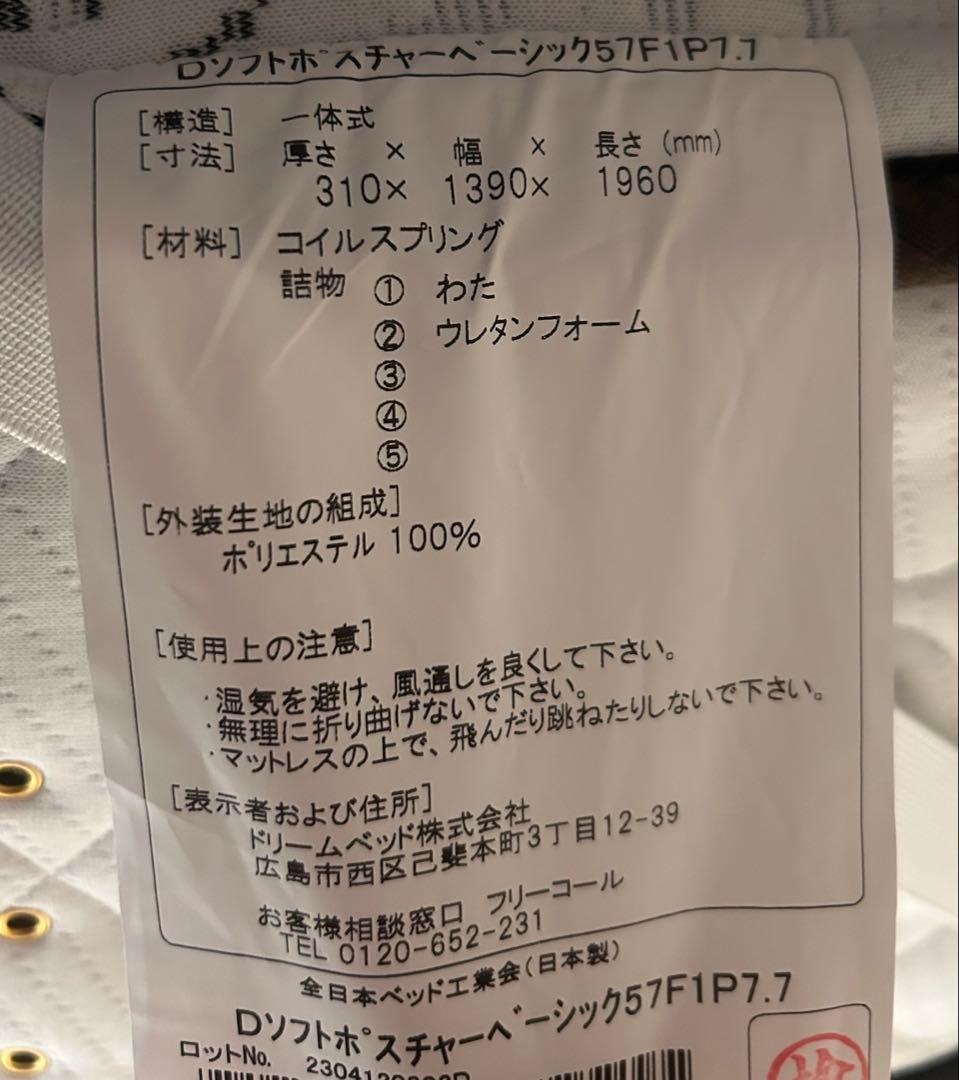 Dソフトポスチャーベーシック57F1P7.7
[構造] 一体式
[寸法] 厚さ × 幅 × 長さ (mm)
310× 1390× 1960
[材料] コイルスプリング
詰物 ① わた
② ウレタンフォーム
③
④
⑤
[外装生地の組成]
ポリエステル 100%
[使用上の注意]
・湿気を避け、風通しを良くして下さい。
・無理に折り曲げないで下さい。
・マットレスの上で、飛んだり跳ねたりしないで下さい。
[表示者および住所]
ドリームベッド株式会社
広島市西区己斐本町3丁目12-39
お客様相談窓口 フリーコール
TEL 0120-652-231
全日本ベッド工業会(日本製)
Dソフトポスチャーベーシック57F1P7.7
ロットNo.